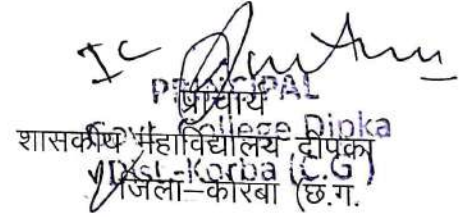 PRINCIPAL
प्राचार्य
Govt. College Dipka
शासकीय महाविद्यालय दीपका
Dist.-Korba (C.G)
जिला–कोरबा (छ.ग.